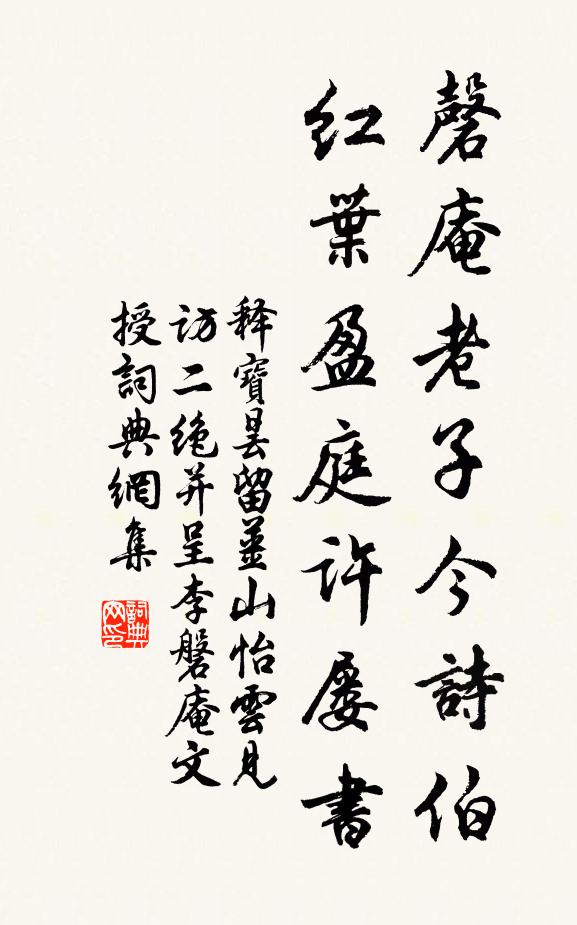 磬庵老子今詩伯
紅葉盈庭許屢書
释寶曇留薑山怡雲見
訪二絕并呈李磐庵文
授詞典網集
詞典
网印